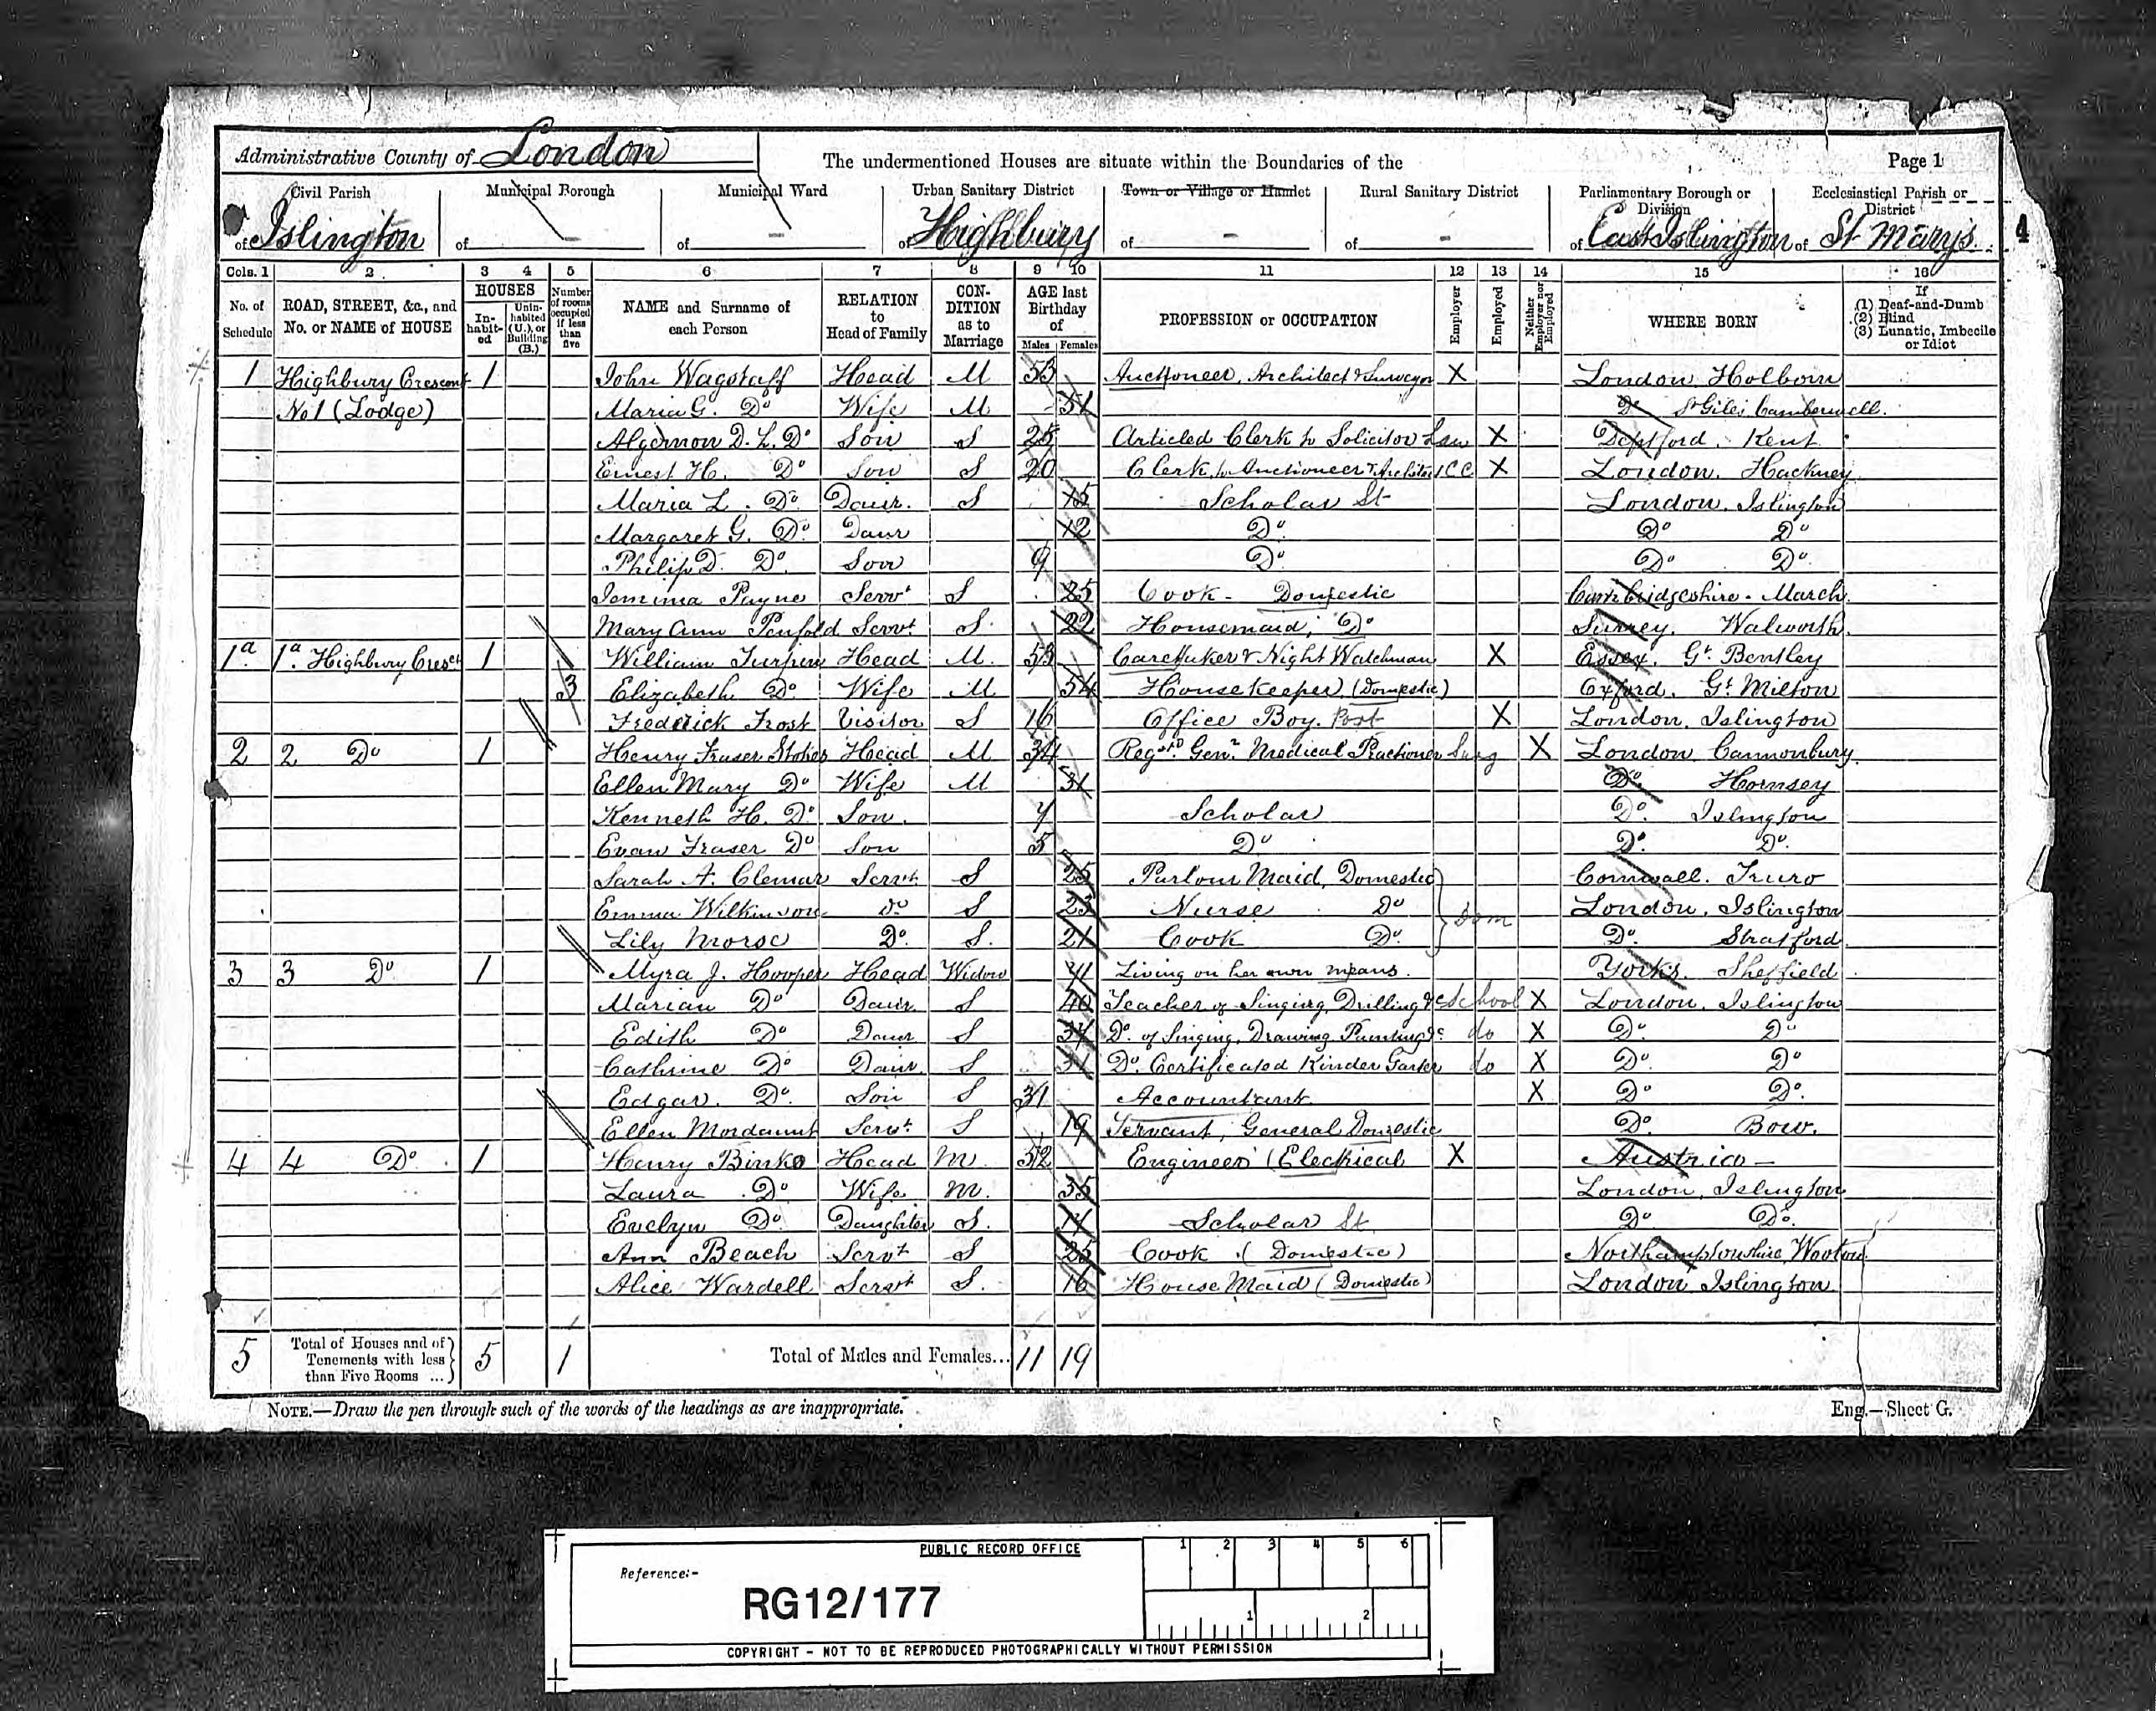 Administrative County of London
The undermentioned Houses are situate within the Boundaries of the
Page 1
Civil Parish Municipal Borough Municipal Ward Urban Sanitary District Town or Village or Hamlet Rural Sanitary District Parliamentary Borough or Division Ecclesiastical Parish or District
of Islington of - of - of Highbury of - of - of East Islington of St Mary's
4
Cols. 1 2 3 4 5 6 7 8 9 10 11 12 13 14 15 16
No. of Schedule ROAD, STREET, &c., and No. or NAME of HOUSE HOUSES Inhabited Uninhabited (U.), or Building (B.) Number of rooms occupied if less than five NAME and Surname of each Person RELATION to Head of Family CONDITION as to Marriage AGE last Birthday of Males Females PROFESSION or OCCUPATION Employer Employed Neither Employer nor Employed WHERE BORN If (1) Deaf-and-Dumb (2) Blind (3) Lunatic, Imbecile or Idiot
1 Highbury Crescent 1 John Wagstaff Head M 53 Auctioneer, Architect & Surveyor X London Holborn
No 1 (Lodge) Maria G. Do Wife M 51 Do St Giles Camberwell.
Algernon D. L. Do Son S 25 Articled Clerk to Solicitor Law X Deptford. Kent
Ernest H. Do Son S 20 Clerk to Auctioneer & Architect CC X London. Hackney
Maria L. Do Daur. S 15 Scholar St London. Islington
Margaret G. Do Daur 12 Do Do Do
Philip D. Do Son 9 Do Do Do
Jemima Payne Servt S 25 Cook - Domestic Cambridgeshire - March.
Mary Ann Penfold Servt. S 22 Housemaid, Do Surrey. Walworth.
1a 1a Highbury Cresct 1 William Turpin Head M. 53 Caretaker & Night Watchman X Essex. Gt. Bentley
3 Elizabeth Do Wife M 54 Housekeeper (Domestic) Oxford. Gt. Milton
Frederick Frost Visitor S 16 Office Boy. Post X London. Islington
2 2 Do 1 Henry Fraser Stokes Head M 34 Regtd Genr. Medical Practioner Surg X London Cannonbury.
Ellen Mary Do Wife M 31 Do. Hornsey
Kenneth H. Do Son. 7 Scholar Do. Islington
Evan Fraser Do Son 5 Do Do. Do.
Sarah A. Clemar Servt. S 25 Parlour Maid, Domestic Cornwall. Truro
Emma Wilkinson Do S 23 Nurse Do Dom London. Islington
Lily Morse Do. S. 21 Cook Do. Do. Stratford
3 3 Do 1 Myra J. Hooper Head Widow 71 Living on her own means. Yorks. Sheffield
Marian Do Daur. S 40 Teacher of Singing, Drilling &c School X London. Islington
Edith Do Daur S 34 Do. of Singing, Drawing, Painting &c do X Do. Do
Cathrine Do Daur. S 31 Do. Certificated Kinder Garten do X Do. Do
Edgar. Do. Son S 31 Accountant X Do Do.
Ellen Mordaunt Servt. S 19 Servant, General Domestic Do. Bow.
4 4 Do. 1 Henry Binko Head M. 52 Engineer (Electrical X Austria -
Laura Do Wife M. 35 London, Islington
Evelyn Do. Daughter S. 14 Scholar St Do Do.
Ann Beach Servt S 25 Cook (Domestic) Northamptonshire, Wooton
Alice Wardell Servt S. 16 House Maid (Domestic) London Islington
5 Total of Houses and of Tenements with less than Five Rooms ... 5 1 Total of Males and Females... 11 19
NOTE.—Draw the pen through such of the words of the headings as are inappropriate.
Eng.—Sheet G.
PUBLIC RECORD OFFICE
1 2 3 4 5 6
Reference:-
RG12/177
1 2
COPYRIGHT - NOT TO BE REPRODUCED PHOTOGRAPHICALLY WITHOUT PERMISSION